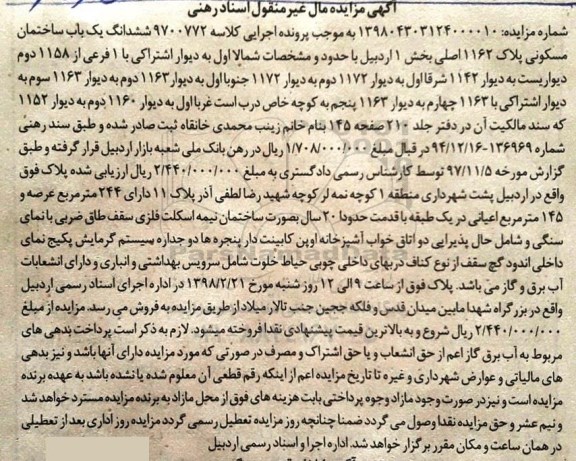 آگهی مزایده مال غیر منقول اسناد رهنی
شماره مزایده: ۱۳۹۸۰۴۳۰۳۱۲۴۰۰۰۰۱۰ به موجب پرونده اجرایی کلاسه ۹۷۰۰۷۷۲ ششدانگ یک باب ساختمان
مسکونی پلاک ۱۱۶۲ اصلی بخش ۱ اردبیل با حدود و مشخصات شمالا اول به دیوار اشتراکی با ۱ فرعی از ۱۱۵۸ دوم
دیواریست به دیوار ۱۱۴۲ شرقا اول به دیوار ۱۱۷۲ دوم به دیوار ۱۱۷۲ جنوبا اول به دیوار ۱۱۶۳ دوم به دیوار ۱۱۶۳ سوم به
دیوار اشتراکی با ۱۱۶۳ چهارم به دیوار ۱۱۶۳ پنجم به کوچه خاص درب است غربا اول به دیوار ۱۱۶۰ دوم به دیوار ۱۱۵۲
که سند مالکیت آن در دفتر جلد ۲۱۰ صفحه ۱۴۵ بنام خانم زینب محمدی خانقاه ثبت صادر شده و طبق سند رهنی
شماره ۱۳۶۹۶۹-۹۴/۱۲/۱۶ در قبال مبلغ ۱/۷۰۸/۰۰۰/۰۰۰ ریال در رهن بانک ملی شعبه بازار اردبیل قرار گرفته و طبق
گزارش مورخه ۹۷/۱۱/۵ توسط کارشناس رسمی دادگستری به مبلغ ۲/۴۴۰/۰۰۰/۰۰۰ ریال ارزیابی شده پلاک فوق
واقع در اردبیل پشت شهرداری منطقه ۱ کوچه نمه لر کوچه شهید رضا لطفی آذر پلاک ۱۱ دارای ۲۴۴ مترمربع عرصه و
۱۴۵ متر مربع اعیانی در یک طبقه با قدمت حدودا ۲۰ سال بصورت ساختمان نیمه اسکلت فلزی سقف طاق ضربی با نمای
سنگی و شامل حال پذیرایی دو اتاق خواب آشپزخانه اوپن کابینت دار پنجره ها دو جداره سیستم گرمایش پکیج نمای
داخلی اندود گچ سقف از نوع کناف دربهای داخلی چوبی حیاط خلوت شامل سرویس بهداشتی و انباری و دارای انشعابات
آب برق و گاز می باشد. پلاک فوق از ساعت ۹ الی ۱۲ روز شنبه مورخ ۱۳۹۸/۲/۲۱ در اداره اجرای اسناد رسمی اردبیل
واقع در بزرگراه شهدا مابین میدان قدس و فلکه ججین جنب تالار میلاد از طریق مزایده به فروش می رسد. مزایده از مبلغ
۲/۴۴۰/۰۰۰/۰۰۰ ریال شروع و به بالاترین قیمت پیشنهادی نقدا فروخته میشود. لازم به ذکر است پرداخت بدهی های
مربوط به آب برق گاز اعم از حق انشعاب و یا حق اشتراک و مصرف در صورتی که مورد مزایده دارای آنها باشد و نیز بدهی
های مالیاتی و عوارض شهرداری و غیره تا تاریخ مزایده اعم از اینکه رقم قطعی آن معلوم شده یا نشده باشد به عهده برنده
مزایده است و نیز در صورت وجود مازاد وجوه پرداختی بابت هزینه های فوق از محل مازاد به برنده مزایده مسترد خواهد شد
و نیم عشر و حق مزایده نقدا وصول می گردد ضمنا چنانچه روز مزایده تعطیل رسمی گردد مزایده روز اداری بعد از تعطیلی
در همان ساعت و مکان مقرر برگزار خواهد شد. اداره اجرا و اسناد رسمی اردبیل